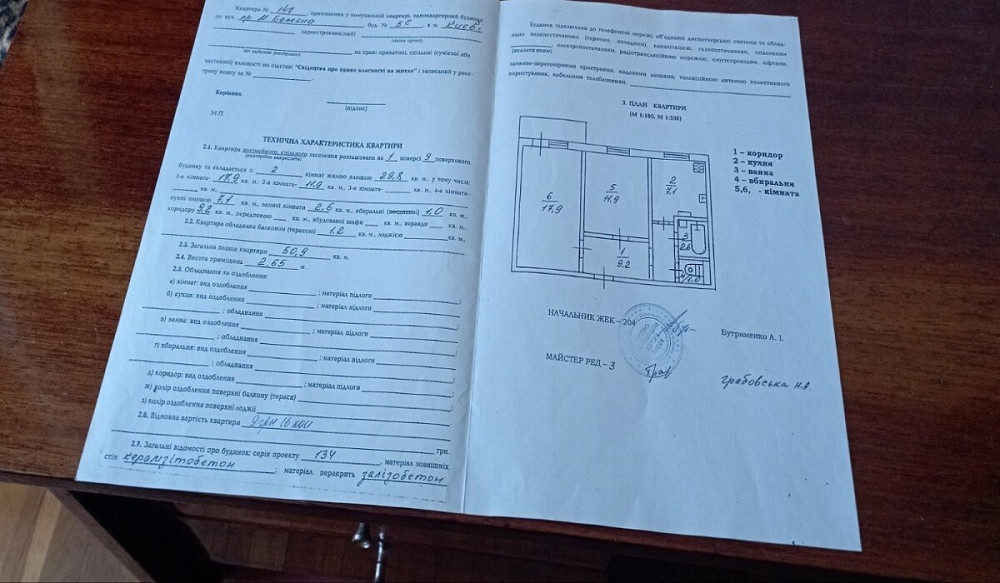 Квартира № 147 приміщення у комунальній квартирі, одноквартирний будинок
по вул. пр М Бажана буд. № 5Є в м. Києві
зареєстрована(ний)
на праві приватної, спільної (сумісної або
часткової) власності на підставі "Свідоцтва про право власності на житло" і записаний у реєс-
трову книгу за №
Керівник
(підпис)
М.П.
ТЕХНІЧНА ХАРАКТЕРИСТИКА КВАРТИРИ
2.1. Квартира посімейного, спільного заселення розташована на 1 поверсі 9 поверхового
(непотрібне викреслити)
будинку та складається з: 2 кімнат жилою площею 29,8 кв. м., у тому числі:
1-а кімната- 17,9 кв. м. 2-а кімната- 11,9 кв. м., 3-я кімната- кв. м., 4-а кімната-
кв. м.,
кухні площею 7,1 кв. м., ванної кімнати 2,6 кв. м., вбиральні 1,0 кв. м.,
коридору 9,2 кв. м., передпокою кв. м., вбудованої шафи кв. м., веранди кв. м.
2.2. Квартира обладнана балконом (терасою) 1,2 кв. м., лоджією кв. м.,
2.3. Загальна площа квартири 50,9 кв. м.
2.4. Висота приміщень 2,65 м.
2.5. Обладнання та оздоблення:
а) кімнат: вид оздоблення ; матеріал підлоги ;
б) кухня: вид оздоблення ; матеріал підлоги
; обладнання ;
в) ванна: вид оздоблення ; матеріал підлоги
; обладнання ;
г) вбиральня: вид оздоблення ; матеріал підлоги
; обладнання ;
д) коридор: вид оздоблення ; матеріал підлоги ;
ж) колір оздоблення поверхні балкону (тераси) ;
з) колір оздоблення поверхні лоджії
2.6. Відновна вартість квартири 9 грн 16 коп
грн.
2.7. Загальні відомості про будинок: серія проекту 134 , матеріал зовнішніх
стін керамзітобетон ; матеріал перекрить залізобетон
Будинок підключено до телефонної мережі, об'єднаної диспетчерської системи та облад-
нано водопостачанням (гарячим, холодним), каналізацією, газопостачанням, опаленням
(вказати яким) електропостачанням, радіотрансляційною мережею, сміттєпроводом, ліфтами,
замково-переговорним пристроєм, кодовими замками, телевізійною антеною колективного
користування, кабельним телебаченням,
3. ПЛАН КВАРТИРИ
(М 1:100, М 1:200)
1 – коридор
2 – кухня
3 – ванна
4 – вбиральня
5,6, - кімната
6
17,9
5
11,9
2
7,1
3
2,6
1
9,2
4/1,0
НАЧАЛЬНИК ЖЕК – 204
Бутрименко А. І.
МАЙСТЕР РЕД - 3
Грабовська Н.А.